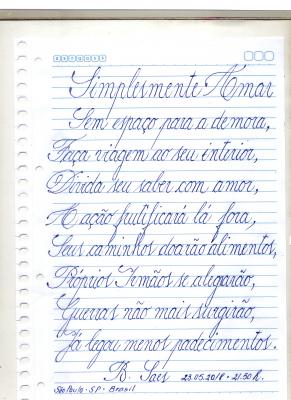 Simplesmente Amar
Sem espaço para a demora,
Faça viagem ao seu interior,
Divida seu saber com amor,
A ação frutificará lá fora,
Seus caminhos doarão alimentos,
Próprios Irmãos se alegarão,
Guerras não mais surgirão,
Já legou menos padecimentos.
B. Saes 23.05.2018 • 21:50 h.
São Paulo • SP • Brasil